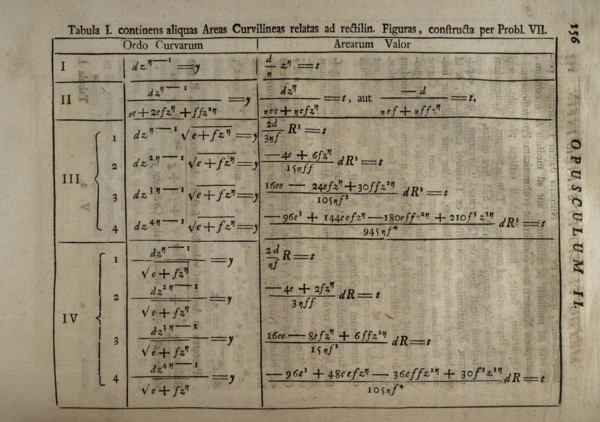 156 OPUSCULUM II.
Tabula I. continens aliquas Areas Curvilineas relatas ad rectilin. Figuras, constructa per Probl. VII.
Ordo Curvarum | Arearum Valor
I | dz^{η—1} = y | \frac{d}{η} z^η = t
II | \frac{dz^{η—1}}{ee + 2efz^η + ffz^{2η}} = y | \frac{dz^η}{ηee + ηefz^η} = t, aut \frac{—d}{ηef + ηffz^η} = t.
III 1 | dz^{η—1} √(e + fz^η) = y | \frac{2d}{3ηf} R³ = t
2 | dz^{2η—1} √(e + fz^η) = y | \frac{—4e + 6fz^η}{15ηff} dR³ = t
3 | dz^{3η—1} √(e + fz^η) = y | \frac{16ee — 24efz^η + 30ffz^{2η}}{105ηf³} dR³ = t
4 | dz^{4η—1} √(e + fz^η) = y | \frac{—96e³ + 144eefz^η — 180effz^{2η} + 210f³z^{3η}}{945ηf⁴} dR³ = t
IV 1 | \frac{dz^{η—1}}{√(e + fz^η)} = y | \frac{2d}{ηf} R = t
2 | \frac{dz^{2η—1}}{√(e + fz^η)} = y | \frac{—4e + 2fz^η}{3ηff} dR = t
3 | \frac{dz^{3η—1}}{√(e + fz^η)} = y | \frac{16ee — 8efz^η + 6ffz^{2η}}{15ηf³} dR = t
4 | \frac{dz^{4η—1}}{√(e + fz^η)} = y | \frac{—96e³ + 48eefz^η — 36effz^{2η} + 30f³z^{3η}}{105ηf⁴} dR = t